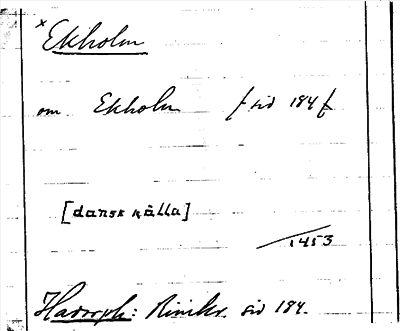 x Ekholm
om Ekholm f sid 184 f
[dansk källa]
1453
Hadorph: Rimkr. sid 184.